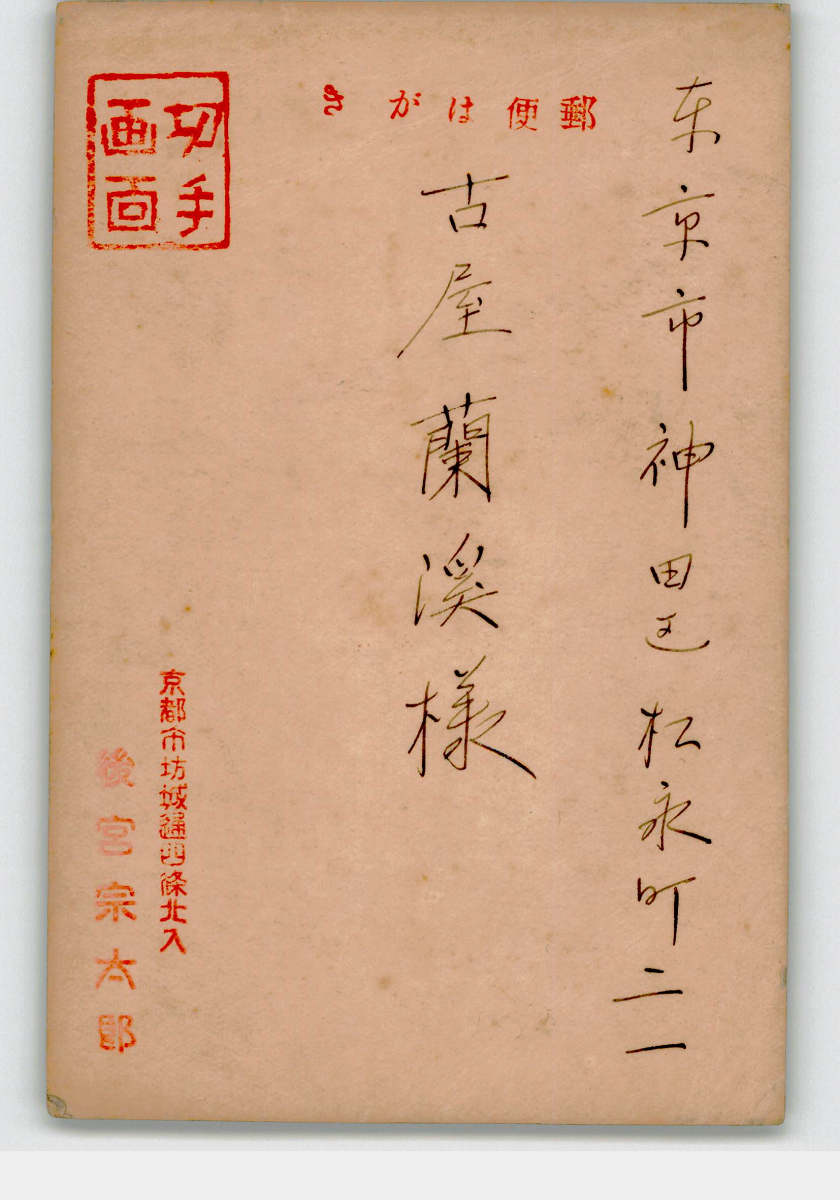 郵便はがき
切手
画面
东京市神田区松永町二一
古屋蘭溪様
京都市坊城通四條北入
後宮宗太郎